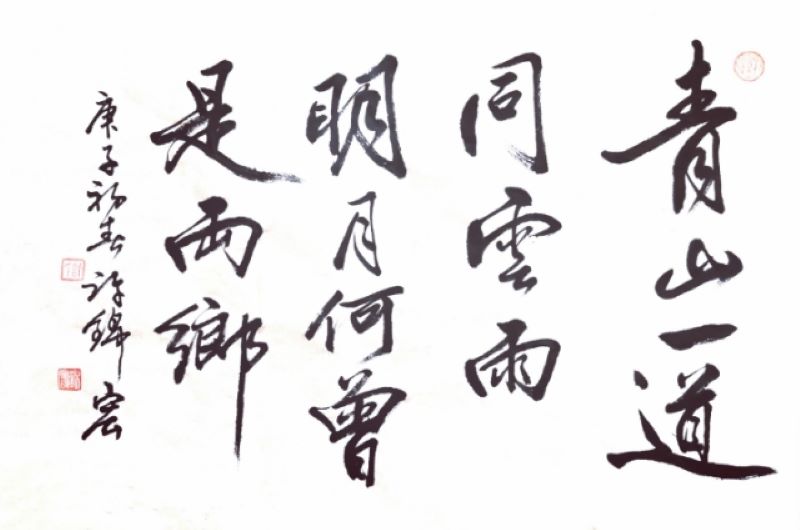 青山一道
同雲雨
明月何曾
是兩鄉
庚子初春許錦宏